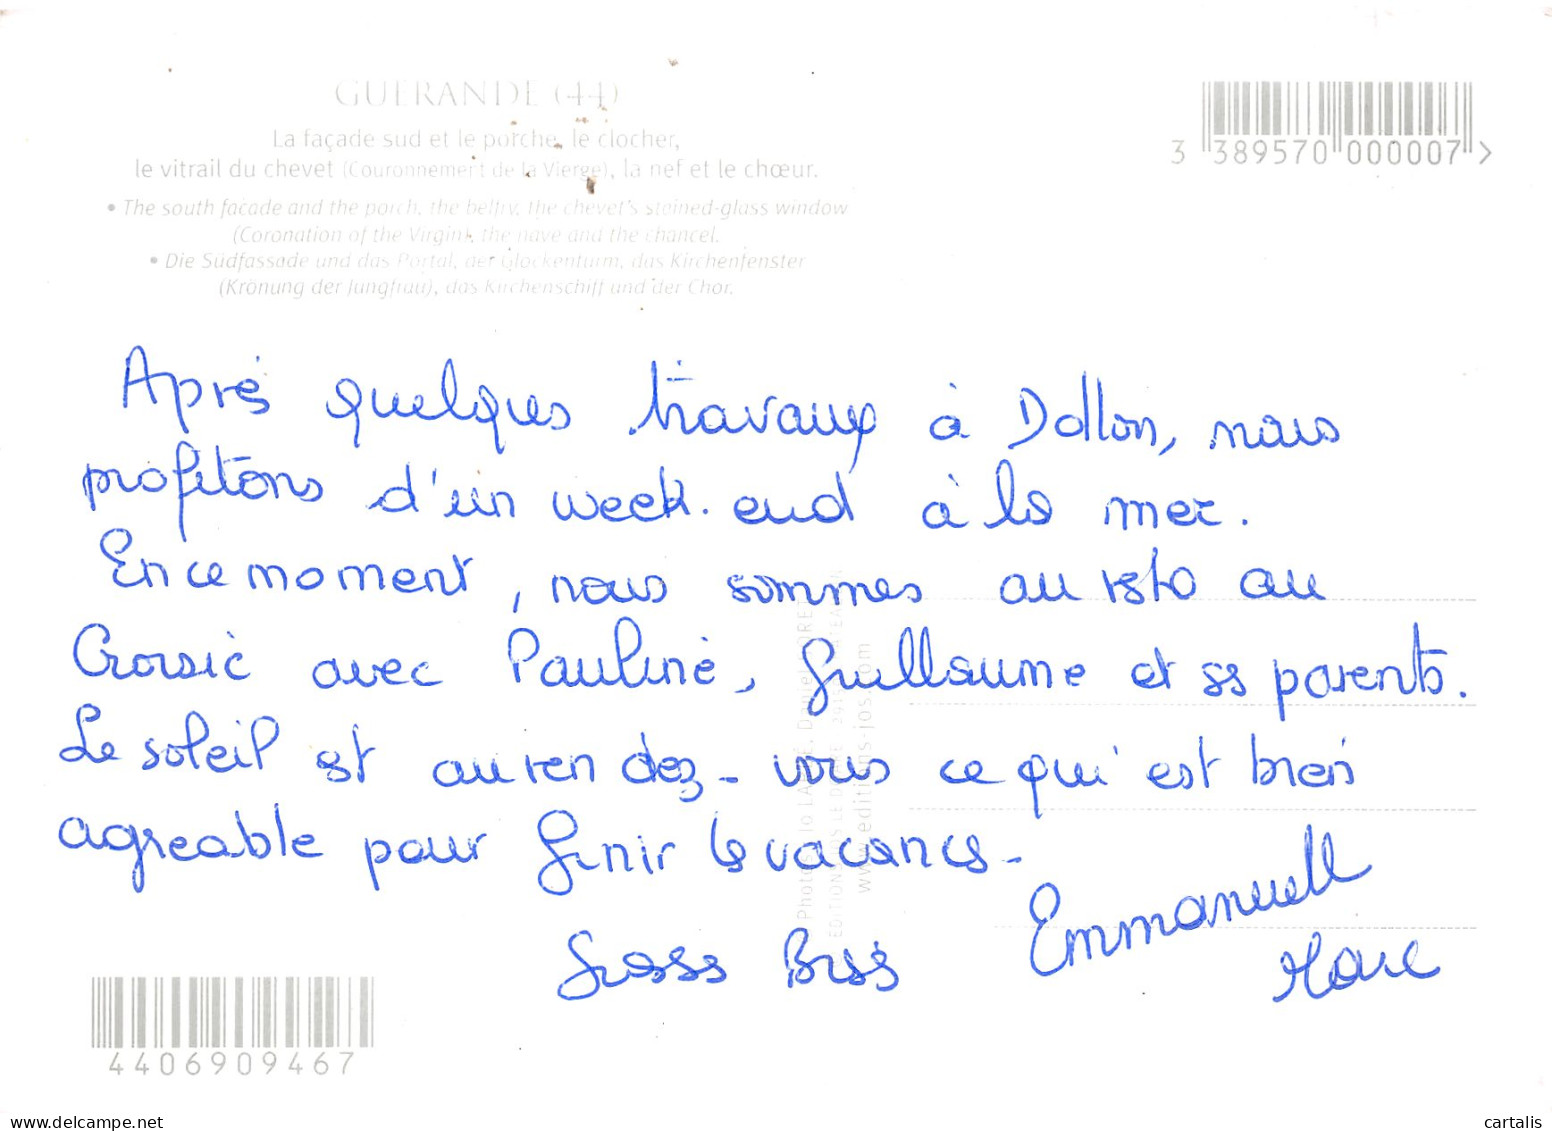 GUERANDE (44)
La façade sud et le porche, le clocher,
le vitrail du chevet (Couronnement de la Vierge), la nef et le chœur.
• The south facade and the porch, the belfry, the chevet's stained-glass window
(Coronation of the Virgin), the nave and the chancel.
• Die Südfassade und das Portal, der Glockenturm, das Kirchenfenster
(Krönung der Jungfrau), das Kirchenschiff und der Chor.
3 389570 000007 >
Après quelques travaux à Dollon, nous
profitons d'un week-end à la mer.
En ce moment, nous sommes au resto au
Croisic avec Pauline, Guillaume et ses parents.
Le soleil est au rendez-vous ce qui est bien
agréable pour finir les vacances.
Grosses Bises
Emmanuelle
Marc
Photos Jo LA
EDITIONS
www.editions-jos.com
4406909467
delcampe.net
cartalis